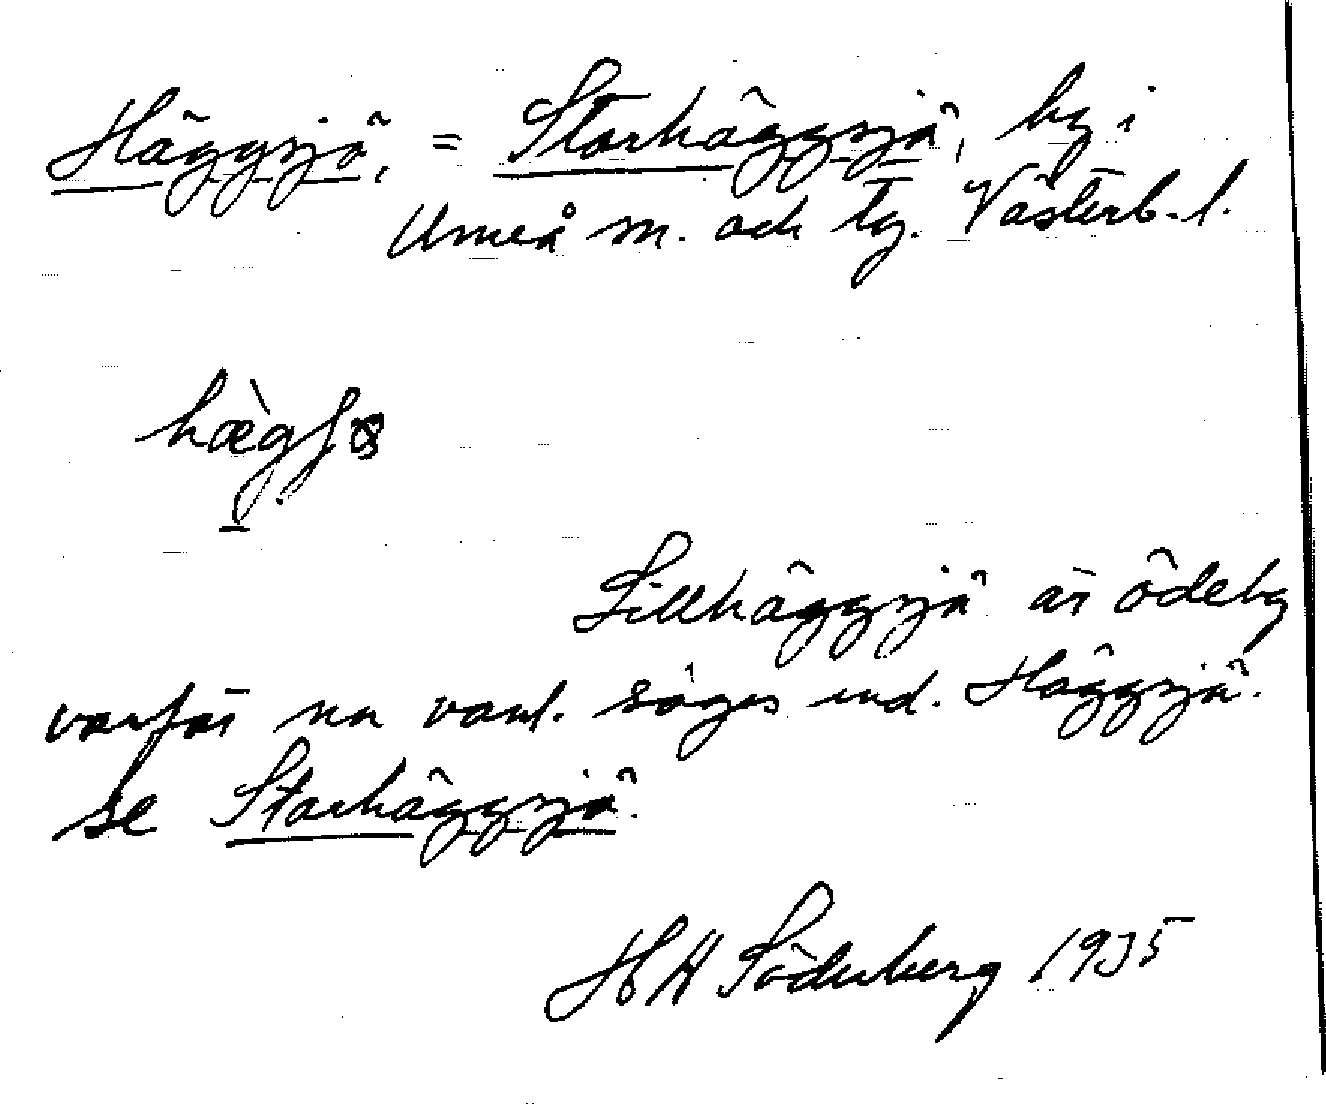 Häggsjö, = Storhäggsjö, by i
Umeå sn. och tg. Västerb. l.
Lillhäggsjö är ödeby
varför nu vanl. säges end. Häggsjö.
se Storhäggsjö.
H Söderberg 1935